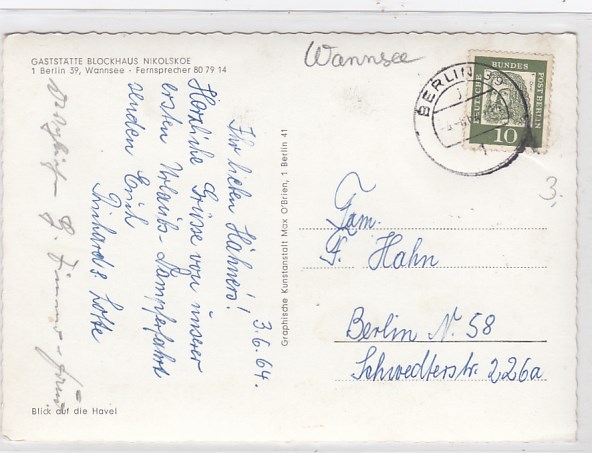 GASTSTÄTTE BLOCKHAUS NIKOLSKOE
1 Berlin 39, Wannsee - Fernsprecher 80 79 14
Wannsee
BERLIN
DEUTSCHE BUNDES POST BERLIN
10
3,
3.6.64.
Ihr lieben Hähners!
Herzliche Grüsse von unserer
ersten Urlaubs-Dampferfahrt
senden Erich
Lotte
Graphische Kunstanstalt Max O'Brien, 1 Berlin 41
Fam.
F. Hahn
Berlin N. 58
Schwedterstr. 226a
Blick auf die Havel